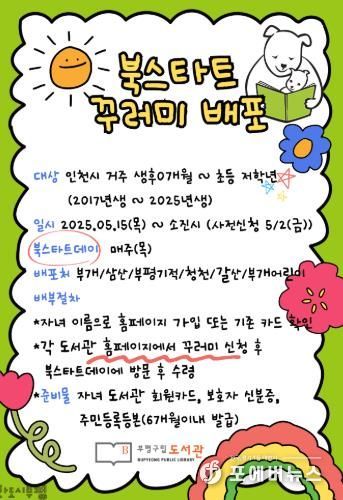 북스타트
꾸러미 배포
대상 인천시 거주 생후0개월 ~ 초등 저학년
(2017년생 ~ 2025년생)
일시 2025.05.15(목) ~ 소진시 (사전신청 5/2(금))
북스타트데이 매주(목)
배포처 부개/삼산/부평기적/청천/갈산/부개어린이
배부절차
*자녀 이름으로 홈페이지 가입 또는 기존 카드 확인
*각 도서관 홈페이지에서 꾸러미 신청 후
북스타트데이에 방문 후 수령
*준비물 자녀 도서관 회원카드, 보호자 신분증,
주민등록등본(6개월이내 발급)
B 부평구립 도서관
BUPYEONG PUBLIC LIBRARY
포에버뉴스